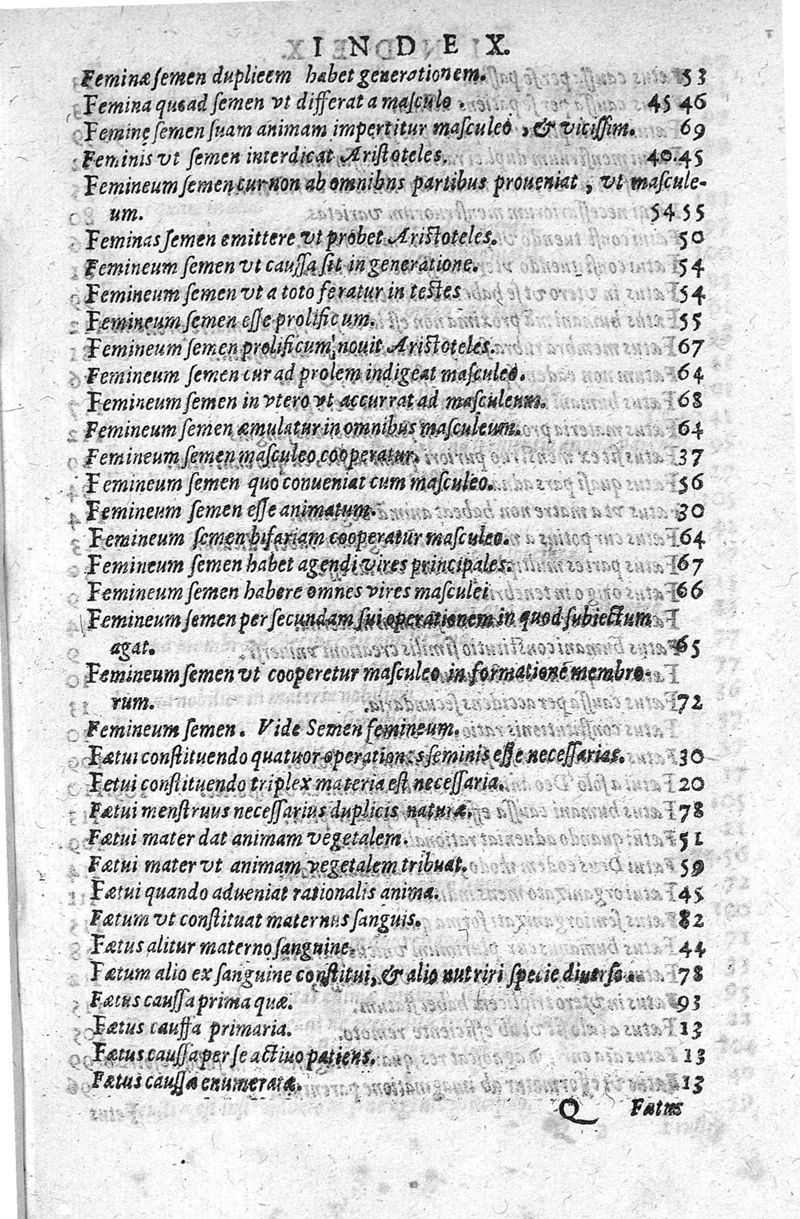 INDEX.
Feminæ semen duplicem habet generationem. 53
Femina quoad semen vt differat a masculo. 45 46
Feminę semen suam animam impertitur masculeo, & vicissim. 69
Feminis vt semen interdicat Aristoteles. 40.45
Femineum semen cur non ab omnibus partibus proueniat, vt mascule-
um. 54 55
Feminas semen emittere vt probet Aristoteles. 50
Femineum semen vt caussa sit in generatione. 54
Femineum semen vt a toto feratur in testes 54
Femineum semen esse prolificum. 55
Femineum semen prolificum, nouit Aristoteles. 67
Femineum semen cur ad prolem indigeat masculeo. 64
Femineum semen in vtero vt accurrat ad masculeum. 68
Femineum semen æmulatur in omnibus masculeum. 64
Femineum semen masculeo cooperatur. 37
Femineum semen quo conueniat cum masculeo. 56
Femineum semen esse animatum. 30
Femineum semen bifariam cooperatur masculeo. 64
Femineum semen habet agendi vires principales. 67
Femineum semen habere omnes vires masculei. 66
Femineum semen per secundam sui operationem in quod subiectum
agat. 65
Femineum semen vt cooperetur masculeo in formatione membro-
rum. 72
Femineum semen. Vide Semen femineum.
Fætui constituendo quatuor operationes seminis esse necessarias. 30
Fetui constituendo triplex materia est necessaria. 20
Fætui menstruus necessarius duplicis naturæ. 78
Fætui mater dat animam vegetalem. 51
Fætui mater vt animam vegetalem tribuat. 59
Fætui quando adueniat rationalis anima. 45
Fætum vt constituat maternus sanguis. 82
Fætus alitur materno sanguine. 44
Fætum alio ex sanguine constitui, & alio nutriri specie diuerso. 78
Fætus caussa prima quæ. 93
Fætus caussa primaria. 13
Fætus caussa per se actiuo patiens. 13
Fætus caussæ enumeratæ. 13
Q Fætus